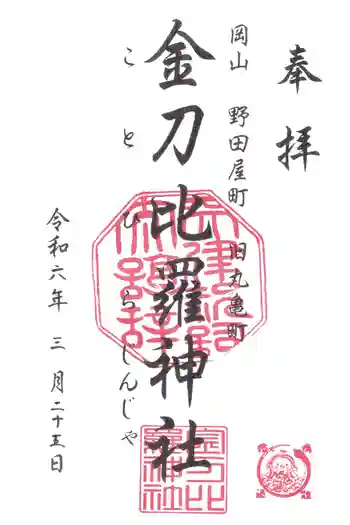 奉拝
岡山 野田屋町 旧丸亀町
金刀比羅神社
ことひらじんじゃ
令和六年 三月二十五日